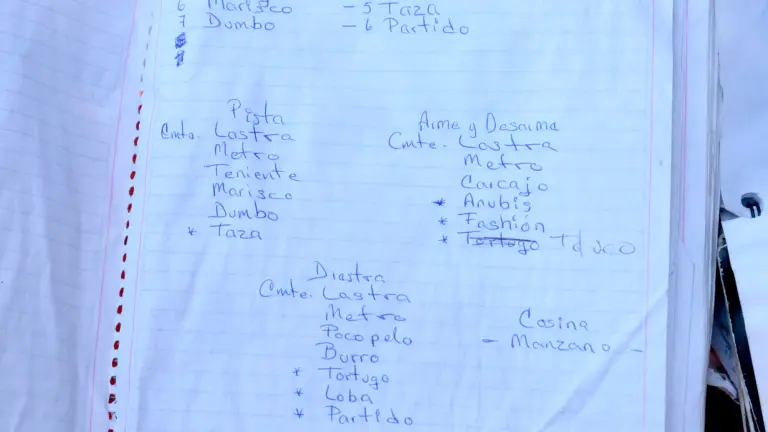 6 Marisco - 5 Taza
7 Dumbo - 6 Partido
Pista
Cmte. Lastra
Metro
Teniente
Marisco
Dumbo
* Taza
Arme y Desarme
Cmte. Lastra
Metro
Carcajo
* Anubis
* Fashión
* Tortugo
Diestra
Cmte. Lastra
Metro
Pocopelo
Burro
* Tortugo
* Loba
* Partido
Cosina
- Manzano -